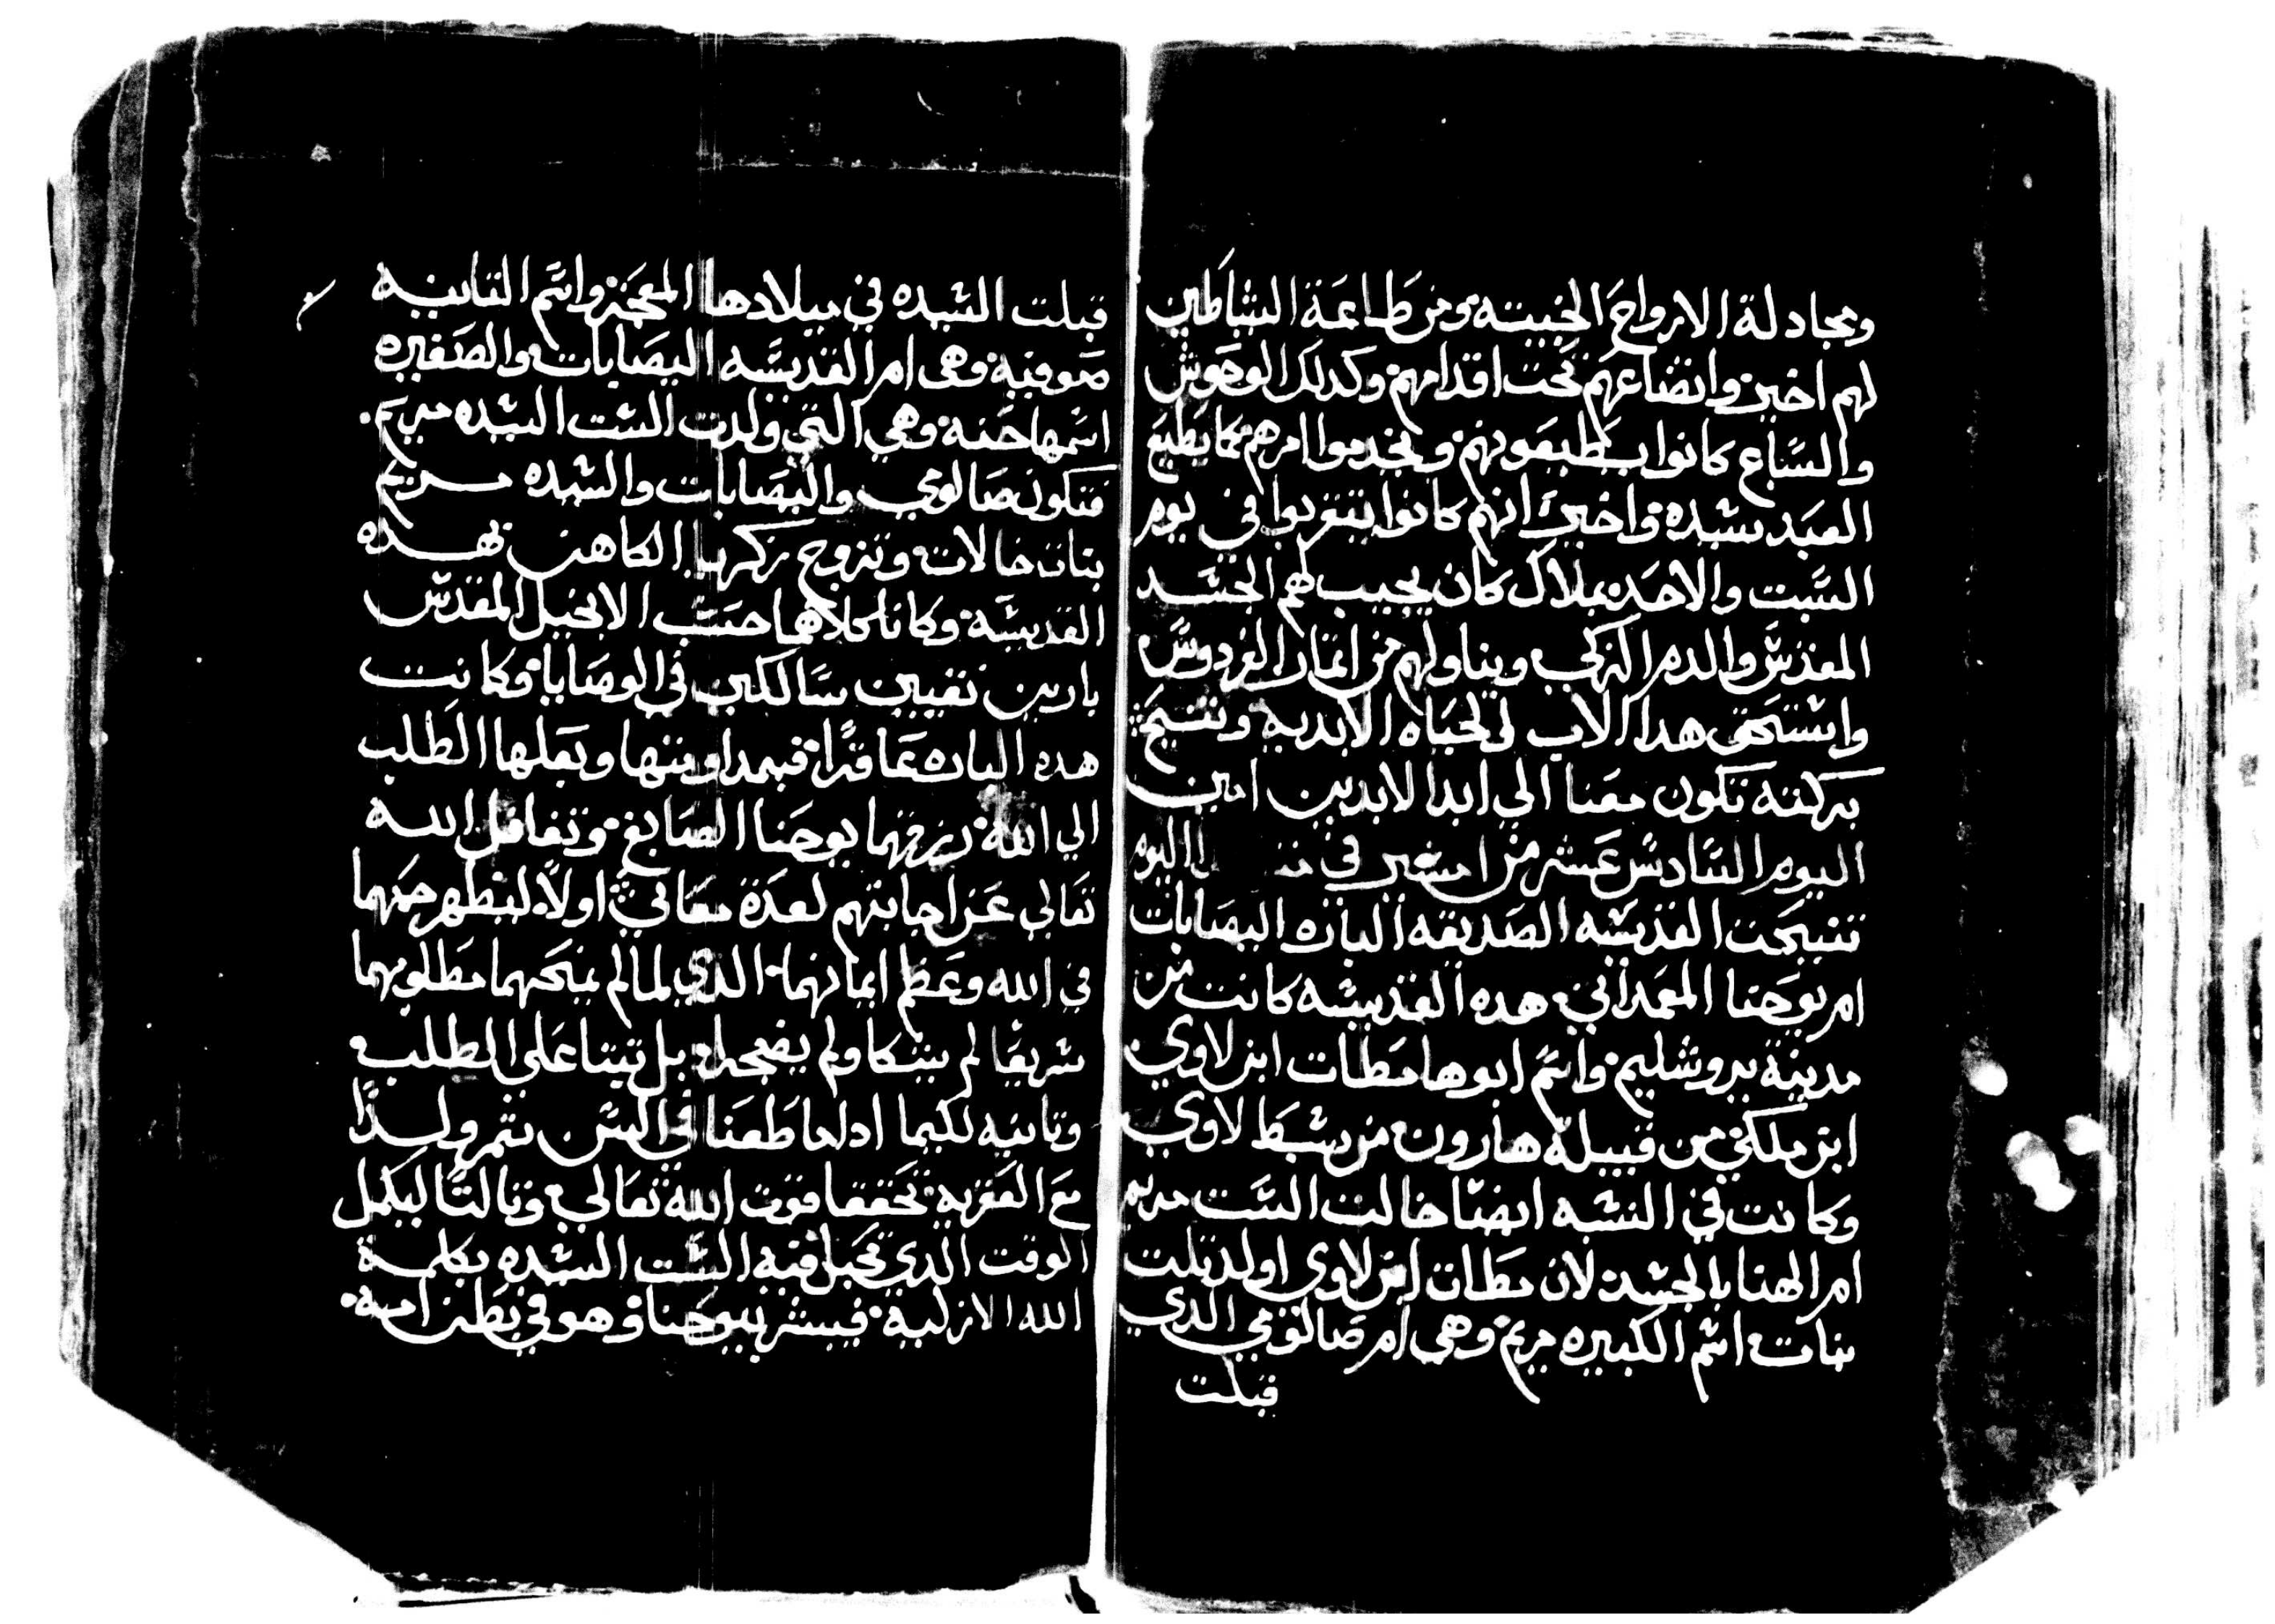 ومجادلة الارواح الخبيتة ومن طاعة الشياطين
لهم اخيرن واتضاعهم تحت اقدامهم وكدلك الوحوش
والسباع كانوا يطيعونهم ويخدموا امرهم كما يطيع
العبد سيده واخيرن انهم كانوا يتقربوا في يوم
السبت والاحد بملاك كان يجيب لهم الجسد
المقدس والدم الزكي ويناولهم من اتمار الفردوس
واستحق هدا الاب لي لحياه الابديه وتنيح
بركته تكون معنا الي ابد الابدين امين
اليوم السادس عشر من امشير في اليوم
تنيحت القديسه الصديقه الباره اليصابات
ام يوحنا المعمداني هده القديسه كانت من
مدينة يروشليم واسم ابوها مطات ابن لاوي
ابن ملكي من قبيلة هارون من سبط لاوي
وكانت في النسبه ايضا خالت الست مريم
ام الهنا بالجسد لان مطات ابن لاوي اولد تلت
بنات اسم الكبيره مريم وهي ام صالومي الدي
قبلت
قبلت السيده في ميلادها المعجز واسم التانيه
صوفية وهي ام القديسه اليصابات والصغيره
اسمها حنة وهي التي ولدت الست السيده مريم
فتكون صالومي واليصابات والسيده مريم
بنات خالات وتزوج زكريا الكاهن بهده
القديسة وكانا كلاهما حسب الانجيل المقدس
بارين تقيين سالكين في الوصايا وكانت
هده الباره عاقرا فبمداومتها وبعلها الطلب
الي الله رزقهما يوحنا الصابغ وتغافل الله
تعالي عن اجابتهم لعدة معاني اولا ليظهر حبهما
في الله وعظم ايمانهما الدي لما لم يمنحهما مطلوبهما
سريعا لم يشكا ولم يضجرا بل تبتا علي الطلب
وتانيه لكيما ادا ما طعنا في السن بتمر ولدا
مع العزيه تحققا قوت الله تعالي وتالتا ليكمل
الوقت الدي تحبل فيه الست السيده بكلمة
الله الازلية فيبشر بيوحنا وهو في بطن امه